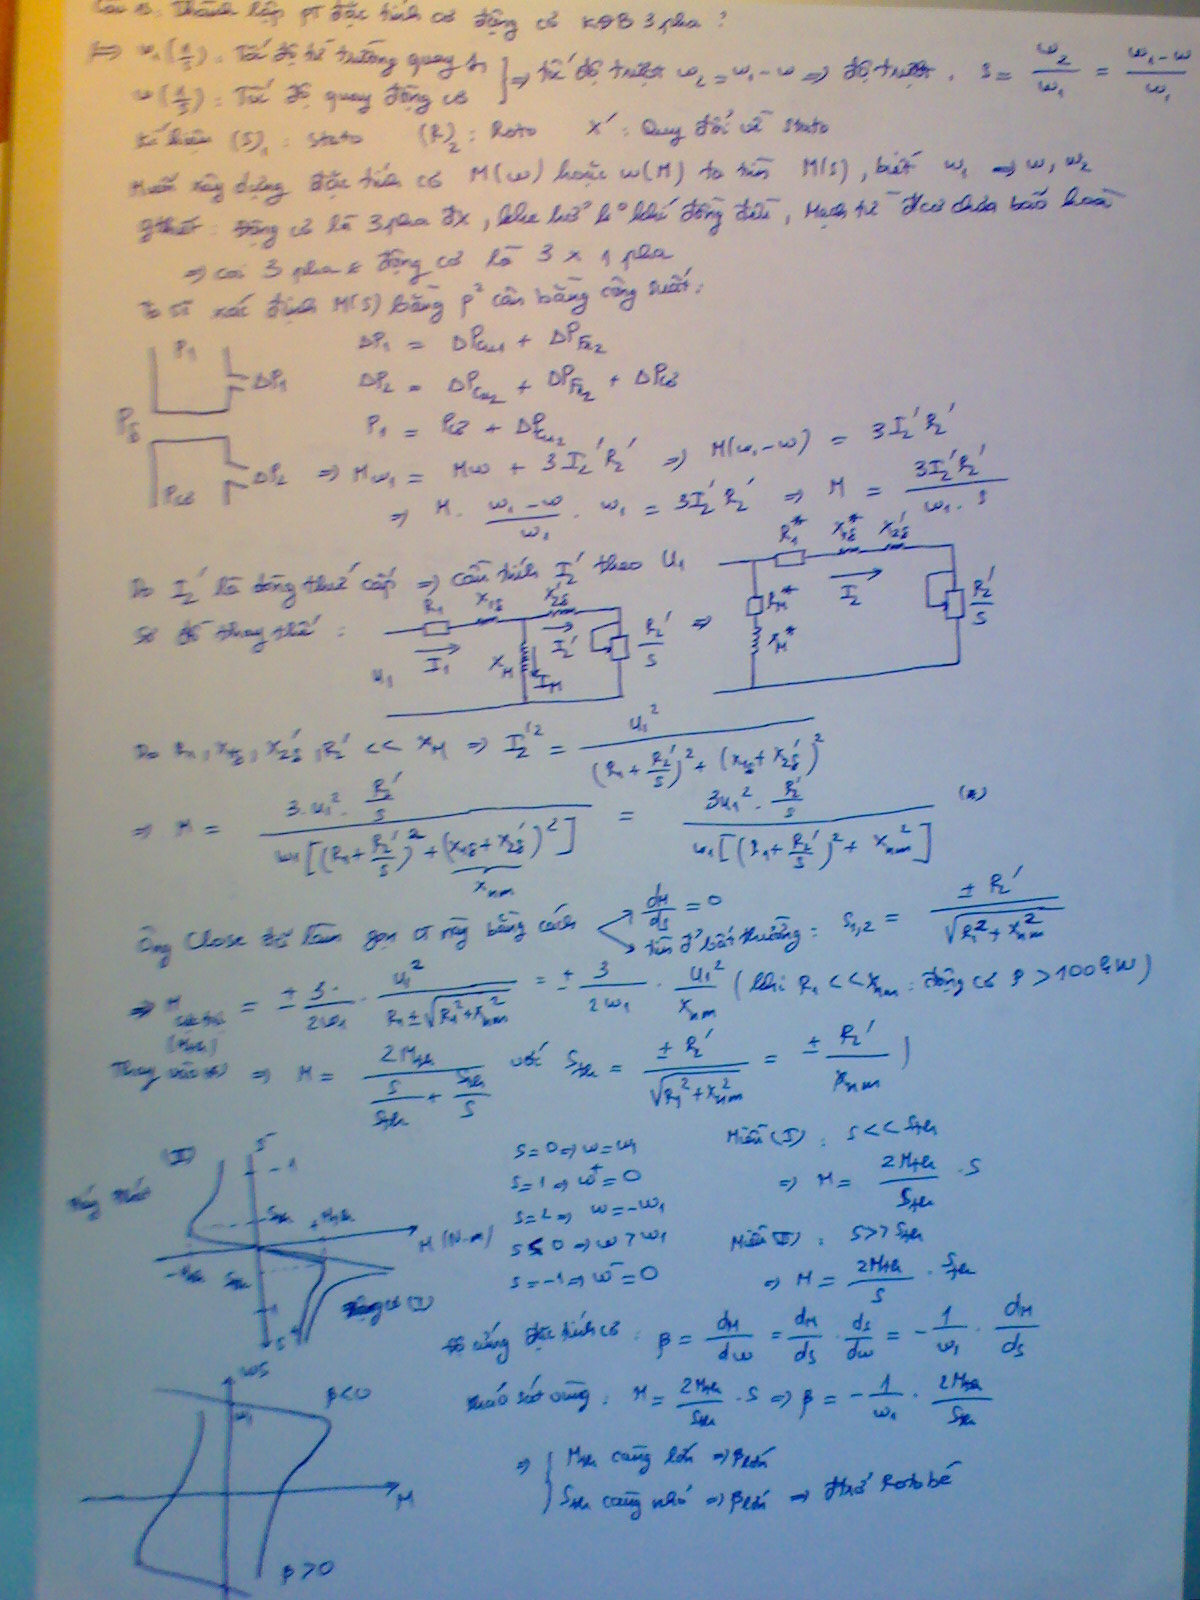 Thành lập pt đặc tính cơ động cơ KĐB 3 pha ?
ω₁ (1/s) : Tốc độ từ trường quay
ω (1/s) : Tốc độ quay động cơ
⇒ tốc độ trượt ω₂ = ω₁ - ω ⇒ độ trượt : s = ω₂/ω₁ = (ω₁ - ω)/ω₁
Kí hiệu (S)₁ : stato (R)₂ : Roto X' : Quy đổi về stato
Muốn xây dựng đặc tính cơ M(ω) hoặc ω(M) ta tìm M(s), biết ω₁ ⇒ ω, ω₂
gthiết : Động cơ là 3 pha đx, khe hở k° khí đồng đều, Mạch từ đcơ chưa bão hoà
⇒ coi 3 pha động cơ là 3 x 1 pha
Ta sẽ xác định M(s) bằng p² cân bằng công suất :
P₁
ΔP₁
Pδ
ΔP₂
Pcơ
ΔP₁ = ΔPcu₁ + ΔPFe₂
ΔP₂ = ΔPcu₂ + ΔPFe₂ + ΔPcơ
P₁ = Pcơ + ΔPcu₂
⇒ Mω₁ = Mω + 3I₂'R₂' ⇒ M(ω₁-ω) = 3I₂'R₂'
⇒ M . (ω₁ - ω)/ω₁ . ω₁ = 3I₂'R₂' ⇒ M = 3I₂'R₂'/(ω₁ . s)
Do I₂' là dòng thứ cấp ⇒ cần tính I₂' theo U₁
Sơ đồ thay thế :
R₁ X₁δ X₂δ' I₁ I₂' U₁ X_M I_M R₂'/s ⇒
R₁* X₁δ* X₂δ' I₂ R_M* X_M* R₂'/s
Do R₁, X₁δ, X₂δ', R₂' << X_M ⇒ I₂'² = U₁²/((R₁ + R₂'/s)² + (X₁δ + X₂δ')²)
⇒ M = 3.U₁² . R₂'/s / (ω₁[(R₁ + R₂'/s)² + (X₁δ + X₂δ')²]) = 3U₁² . R₂'/s / (ω₁[(R₁ + R₂'/s)² + Xnm²]) (*)
Xnm
Ông Close đã làm gọn pt này bằng cách
dM/ds = 0
tìm đ' bất thường : s₁,₂ = ± R₂'/√(R₁² + Xnm²)
⇒ M = ± 3/2ω₁ . U₁²/(R₁ ± √(R₁² + Xnm²)) = ± 3/2ω₁ . U₁²/Xnm ( khi R₁ << Xnm : động cơ P > 100kW )
(Mth)
Thay vào (*) ⇒ M = 2Mth/(s/sth + sth/s) với sth = ± R₂'/√(R₁² + Xnm²) = ± R₂'/Xnm )
(II)
s⁻
-1
Máy phát
sth
+Mth
M (N-m)
-Mth
sth
1
s⁺
động cơ (I)
s = 0 ⇒ ω = ω₁
s = 1 ⇒ ω⁺ = 0
s = 2 ⇒ ω = -ω₁
s ≤ 0 ⇒ ω > ω₁
s = -1 ⇒ ω⁻ = 0
Miền (I) : s << sth
⇒ M = 2Mth/sth . s
Miền (II) : s >> sth
⇒ M = 2Mth/s . sth
Độ cứng đặc tính cơ : β = dM/dω = dM/ds . ds/dω = - 1/ω₁ . dM/ds
khảo sát vùng : M = 2Mth/sth . s ⇒ β = - 1/ω₁ . 2Mth/sth
⇒ Mth càng lớn ⇒ β lớn
sth càng nhỏ ⇒ β lớn ⇒ Roto bé
ωs
β<0
ω₁
M
β > 0